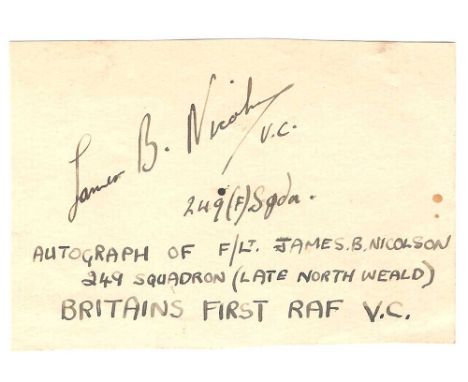 James B. Nicolson
V.C.
249 (F) Sqdn.
AUTOGRAPH OF F/LT. JAMES.B.NICOLSON
249 SQUADRON (LATE NORTH WEALD)
BRITAINS FIRST RAF V.C.